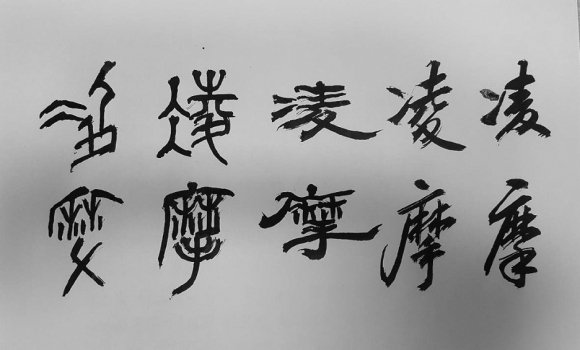 凌摩
凌摩
凌摩
凌摩